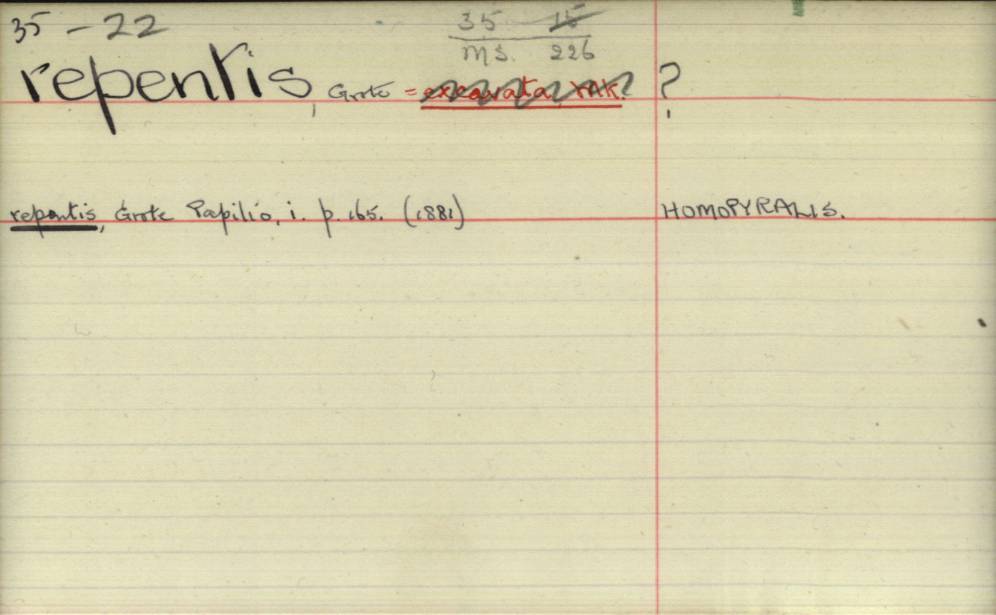 35 - 22
35 15
MS. 226
repentis, Grote = excavata, Wlk. ?
repentis, Grote Papilio, i. p. 165. (1881) HOMOPYRALIS.